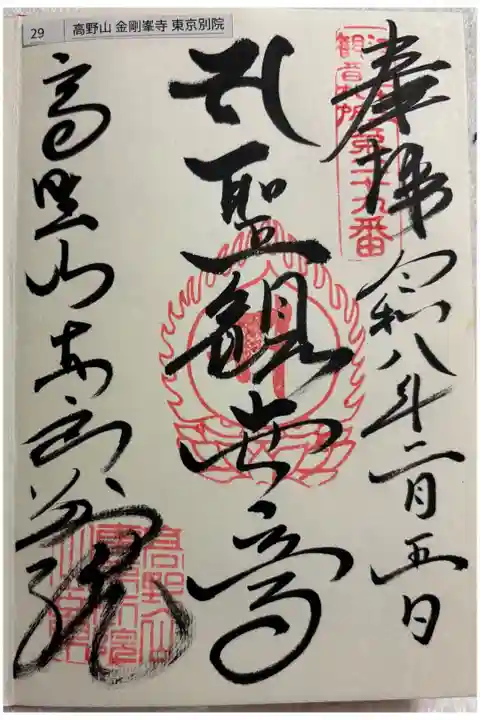 29 高野山 金剛峯寺 東京別院
奉拝 令和八年二月五日
第二十九番
聖観世音
高野山東京別院